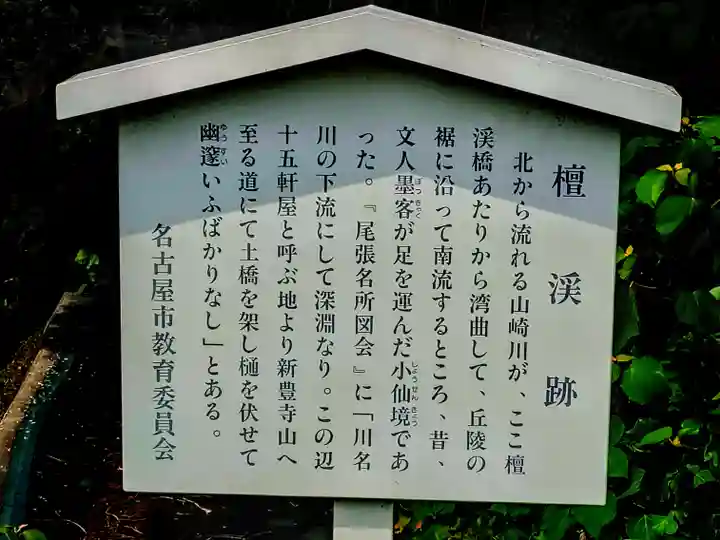 檀渓跡
北から流れる山崎川が、ここ檀
渓橋あたりから湾曲して、丘陵の
裾に沿って南流するところ、昔、
文人墨客が足を運んだ小仙境であ
った。『尾張名所図会』に「川名
川の下流にして深淵なり。この辺
十五軒屋と呼ぶ地より新豊寺山へ
至る道にて土橋を架し樋を伏せて
幽邃いふばかりなし」とある。
名古屋市教育委員会